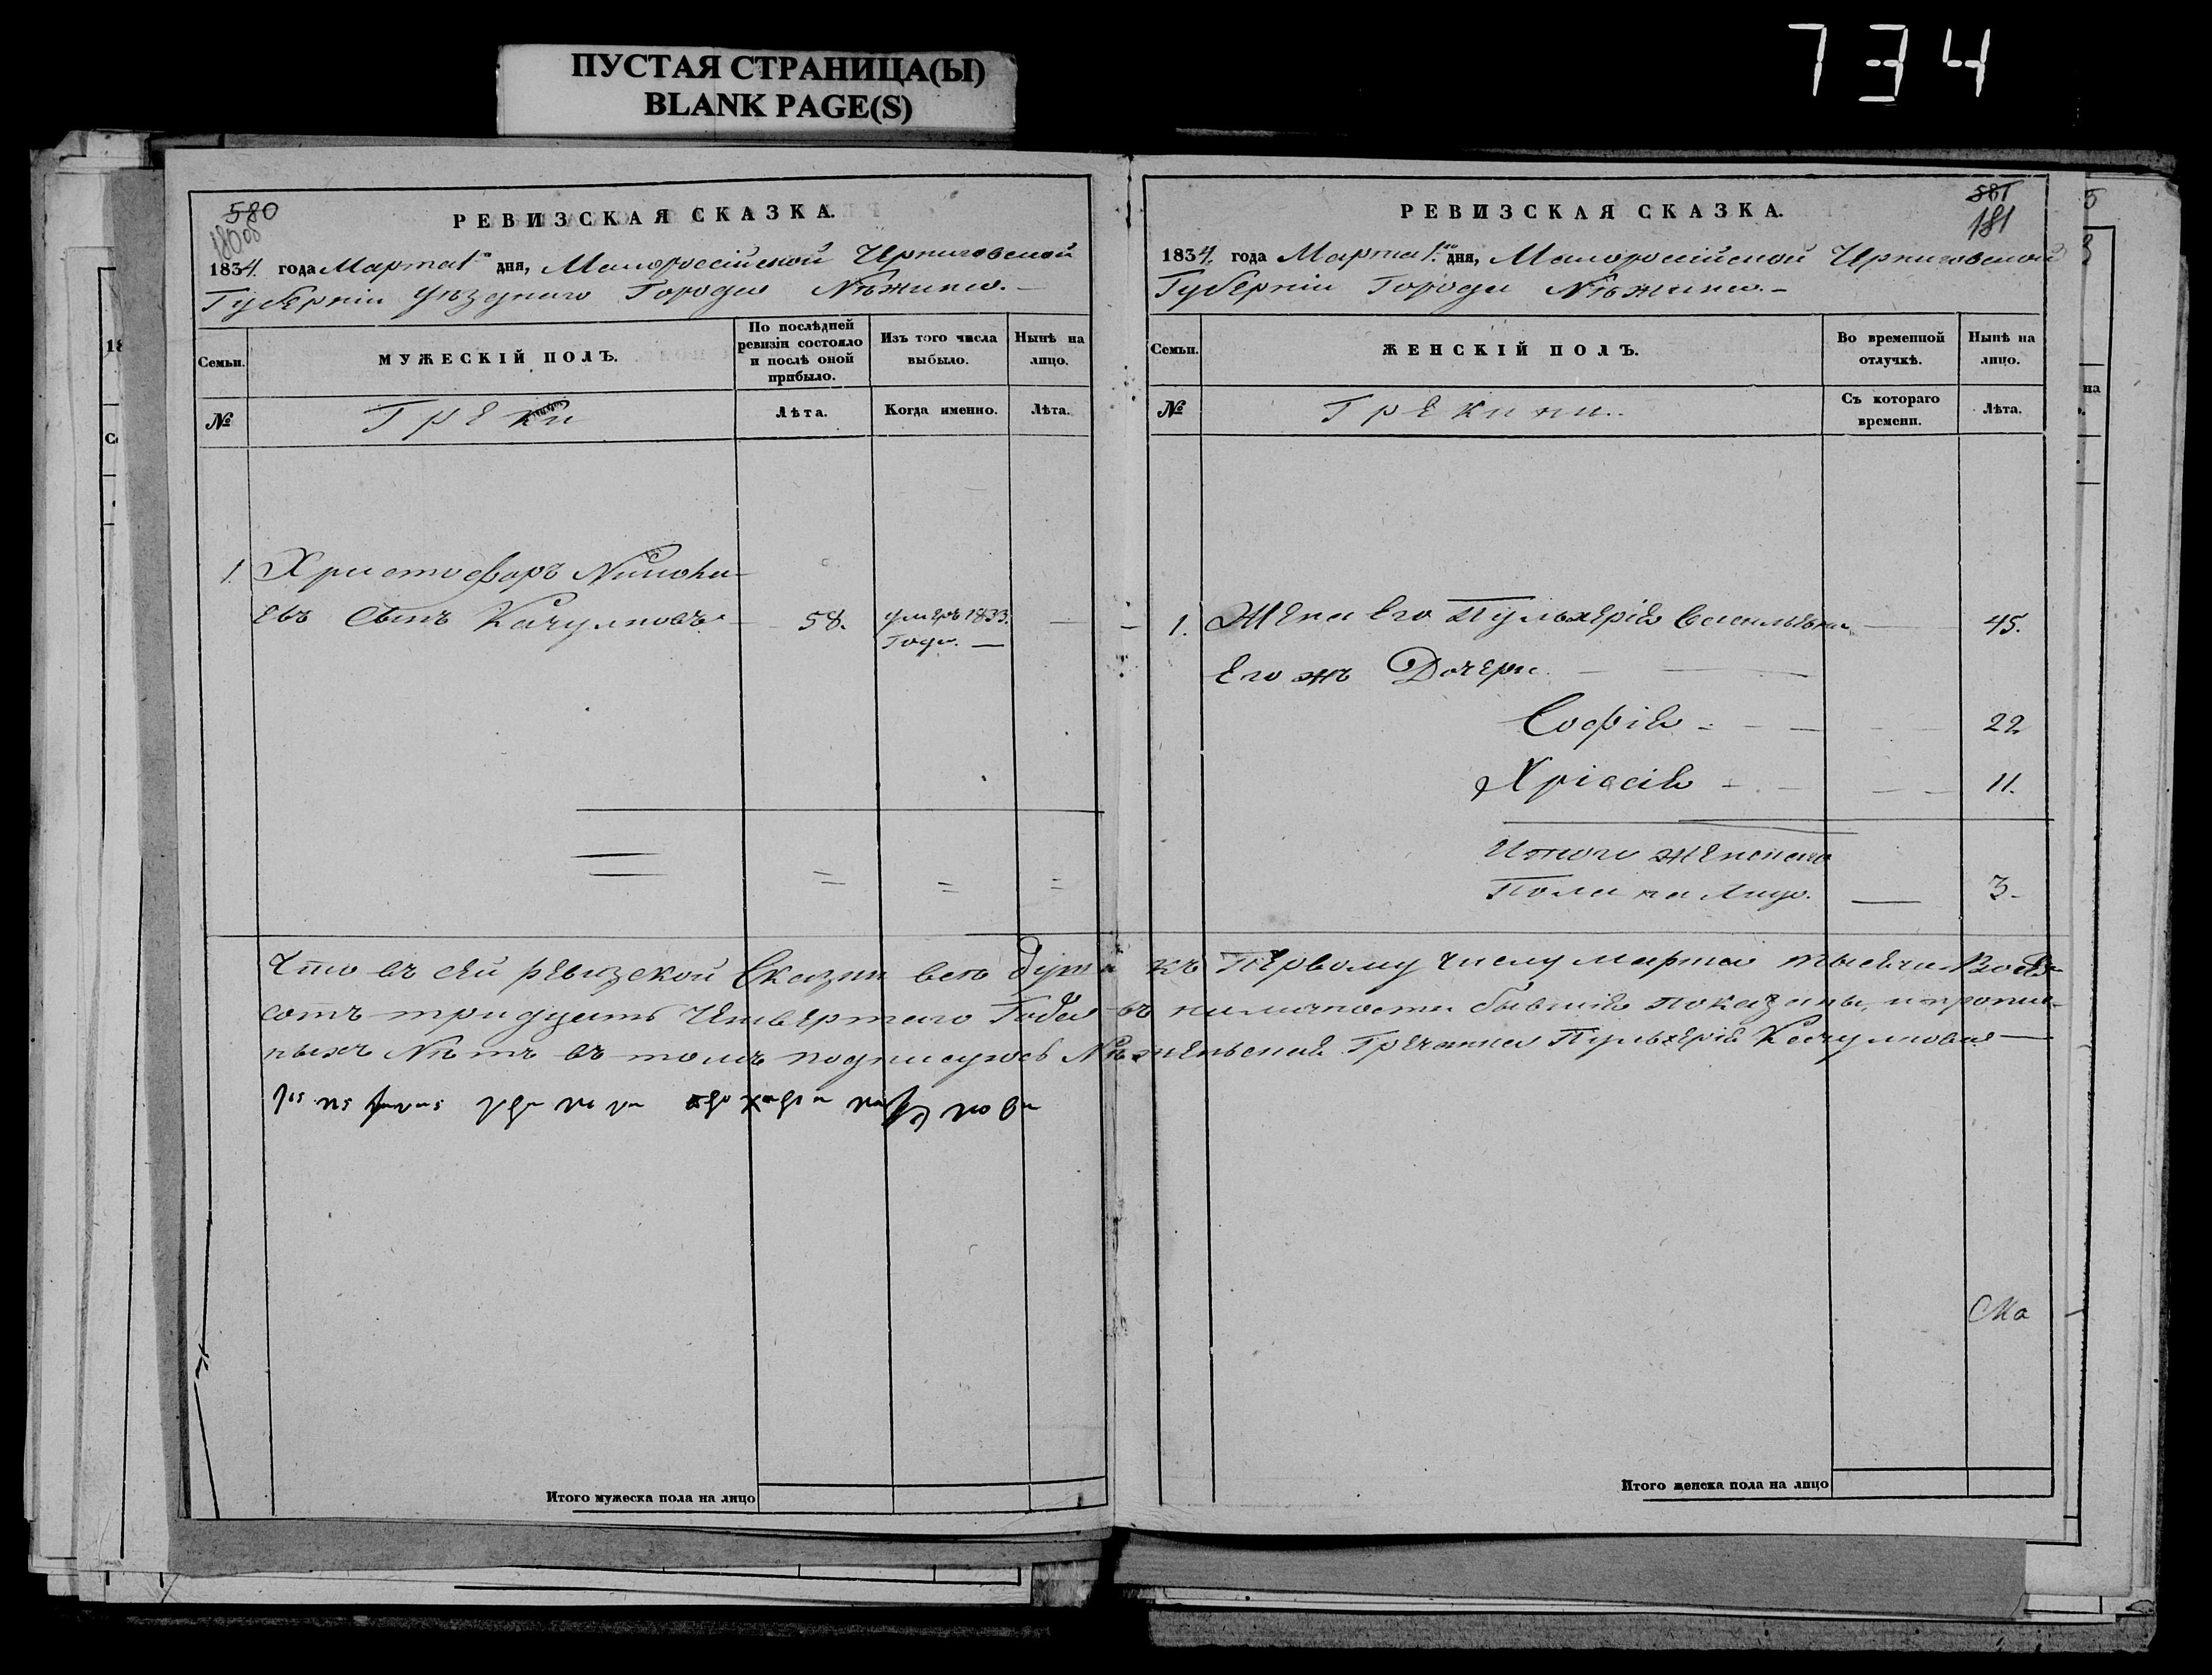 ПУСТАЯ СТРАНИЦА(Ы)
BLANK PAGE(S)
734
580
РЕВИЗСКАЯ СКАЗКА.
1834. года Марта 1го дня, Малороссійской Черниговской
Губерніи уѣзднаго Города Нѣжина.
Семьи.
МУЖЕСКІЙ ПОЛЪ.
По послѣдней ревизіи состояло и послѣ оной прибыло.
Изъ того числа выбыло.
Нынѣ на лицо.
№
Греки
Лѣта.
Когда именно.
Лѣта.
1. Христофоръ
евъ Сынъ Качулковъ 58. умеръ 1833.
Года.
Итого мужеска пола на лицо
581
181
РЕВИЗСКАЯ СКАЗКА.
1834. года Марта 1го дня, Малороссійской Черниговской
Губерніи Города Нѣжина.
Семьи.
ЖЕНСКІЙ ПОЛЪ.
Во временной отлучкѣ.
Нынѣ на лицо.
№
Грекини.
Съ котораго времени.
Лѣта.
1. Жена Его Пульхерія Васильевна 45.
Его жъ Дочери.
Софія 22
Хрісія 11.
Итого женскаго
Пола на Лицо. 3
Что въ сей ревизской Сказки всѣ души къ Первому числу марта тысяча Восем
сотъ тридцать Четвертаго Года въ наличности бывшія показаны, и пропис-
ныхъ Нѣтъ въ томъ подписуюсь Нѣженьская Гречанка Пульхерія Качулкова
Ма
Итого женска пола на лицо